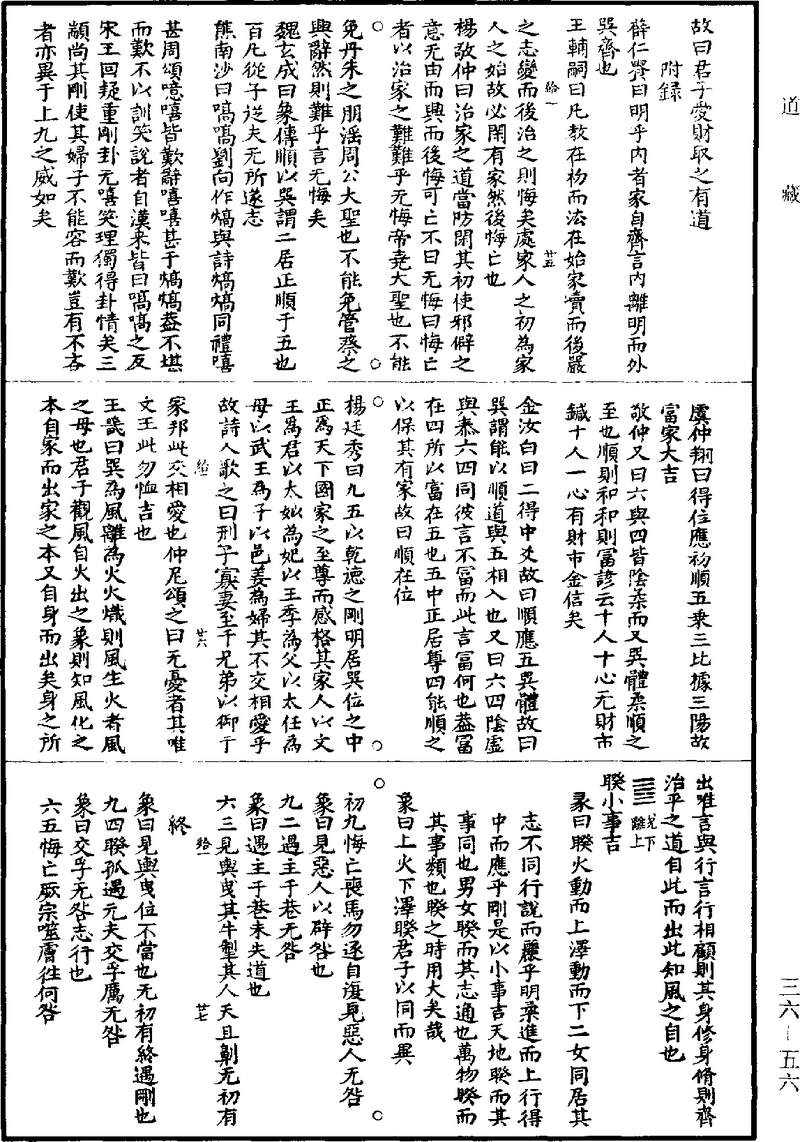 道藏
三六－五六
故曰君子愛財取之有道
附錄
薛仁貴曰明乎內者家自齊言內離明而外
巽齊也
王輔嗣曰凡教在初而法在始家瀆而後嚴
給一 廿五
之志變而後治之則悔矣處家人之初為家
人之始故必閑有家然後悔亡也
楊敬仲曰治家之道當防閑其初使邪僻之
意无由而興而後悔可亡不曰无悔曰悔亡
者以治家之難難乎无悔帝堯大聖也不能
免丹朱之朋淫周公大聖也不能免管蔡之
興辭然則難乎言无悔矣
魏玄成曰象傳順以巽謂二居正順于五也
百凡從子從夫无所遂志
熊南沙曰嗃嗃劉向作熇與詩熇熇同禮嘻
甚周頌噫嘻皆歎辭嘻嘻甚于熇熇蓋不堪
而歎不以訓笑說者自漢来皆曰嗃嗃之反
宋王回疑重剛卦无嘻笑理獨得卦情矣三
顓尚其剛使其婦子不能容而歎豈有不吝
者亦異于上九之威如矣
虞仲翔曰得位應初順五乘三比據三陽故
富家大吉
敬仲又曰六與四皆陰柔而又巽體柔順之
至也順則和和則富諺云十人十心无財市
鍼十人一心有財市金信矣
金汝白曰二得中爻故曰順應五巽體故曰
巽謂能以順道與五相入也又曰六四陰虛
與泰六四同彼言不富而此言富何也蓋富
在四所以富在五也五中正居尊四能順之
以保其有家故曰順在位
楊廷秀曰九五以乾德之剛明居巽位之中
正為天下國家之至尊而感格其家人以文
王爲君以太姒為妃以王季為父以太任為
母以武王為子以邑姜為婦其不交相愛乎
故詩人歌之曰刑于寡妻至于兄弟以御于
給一 廿六
家邦此交相愛也仲尼頌之曰无憂者其唯
文王此勿恤吉也
王畿曰巽為風離為火火熾則風生火者風
之母也君子觀風自火出之象則知風化之
本自家而出家之本又自身而出矣身之所
出唯言與行言行相顧則其身修身脩則齊
治乎之道自此而出此知風之自也
兌下離上
睽小事吉
彖曰睽火動而上澤動而下二女同居其
志不同行說而麗乎明柔進而上行得
中而應乎剛是以小事吉天地睽而其
事同也男女睽而其志通也萬物睽而
其事類也睽之時用大矣哉
象曰上火下澤睽君子以同而異
初九悔亡喪馬勿逐自復見惡人无咎
象曰見惡人以辟咎也
九二遇主于巷无咎
象曰遇主于巷未失道也
六三見輿曳其牛掣其人天且劓无初有
給一 廿七
終
象曰見輿曳位不當也无初有終遇剛也
九四睽孤遇元夫交孚厲无咎
象曰交孚无咎志行也
六五悔亡厥宗噬膚往何咎